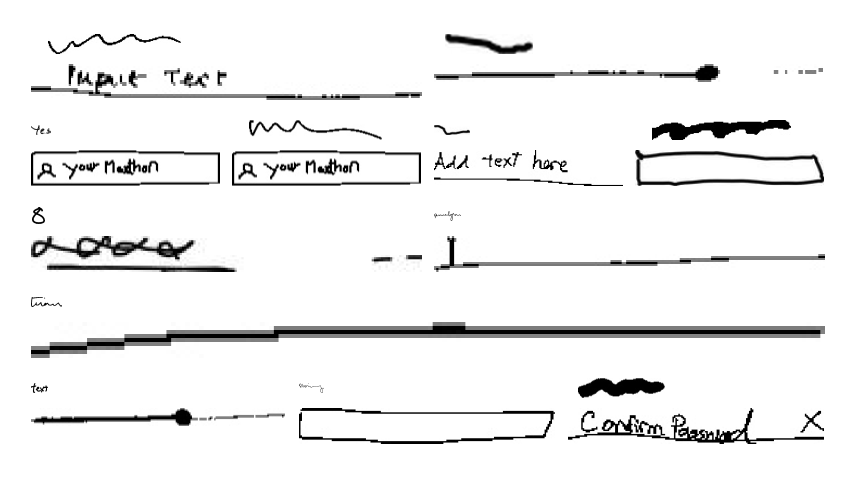 Yes
your Maxthon your Maxthon Add text here
8
text
Confirm Password X